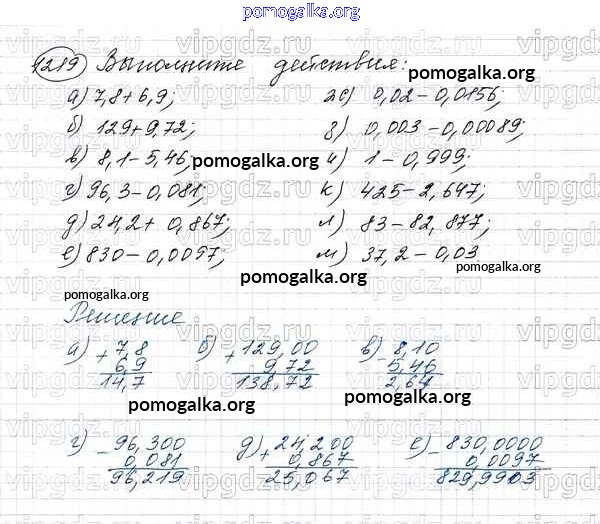 pomogalka.org
1219 Выполните действия:
pomogalka.org
а) 7,8+6,9; ж) 0,02-0,0156;
б) 129+9,72; з) 0,003-0,00089;
в) 8,1-5,46; и) 1-0,999;
pomogalka.org
г) 96,3-0,081; к) 425-2,647;
д) 24,2+0,867; л) 83-82,877;
е) 830-0,0097; м) 37,2-0,03
pomogalka.org
pomogalka.org
pomogalka.org
Решение
а) + 7,8 б) + 129,00 в) - 8,10
6,9 9,72 5,46
14,7 138,72 2,64
pomogalka.org
pomogalka.org
г) - 96,300 д) + 24,200 е) - 830,0000
0,081 0,867 0,0097
96,219 25,067 829,9903
pomogalka.org
vipgdz.ru vipgdz.ru vipgdz.ru